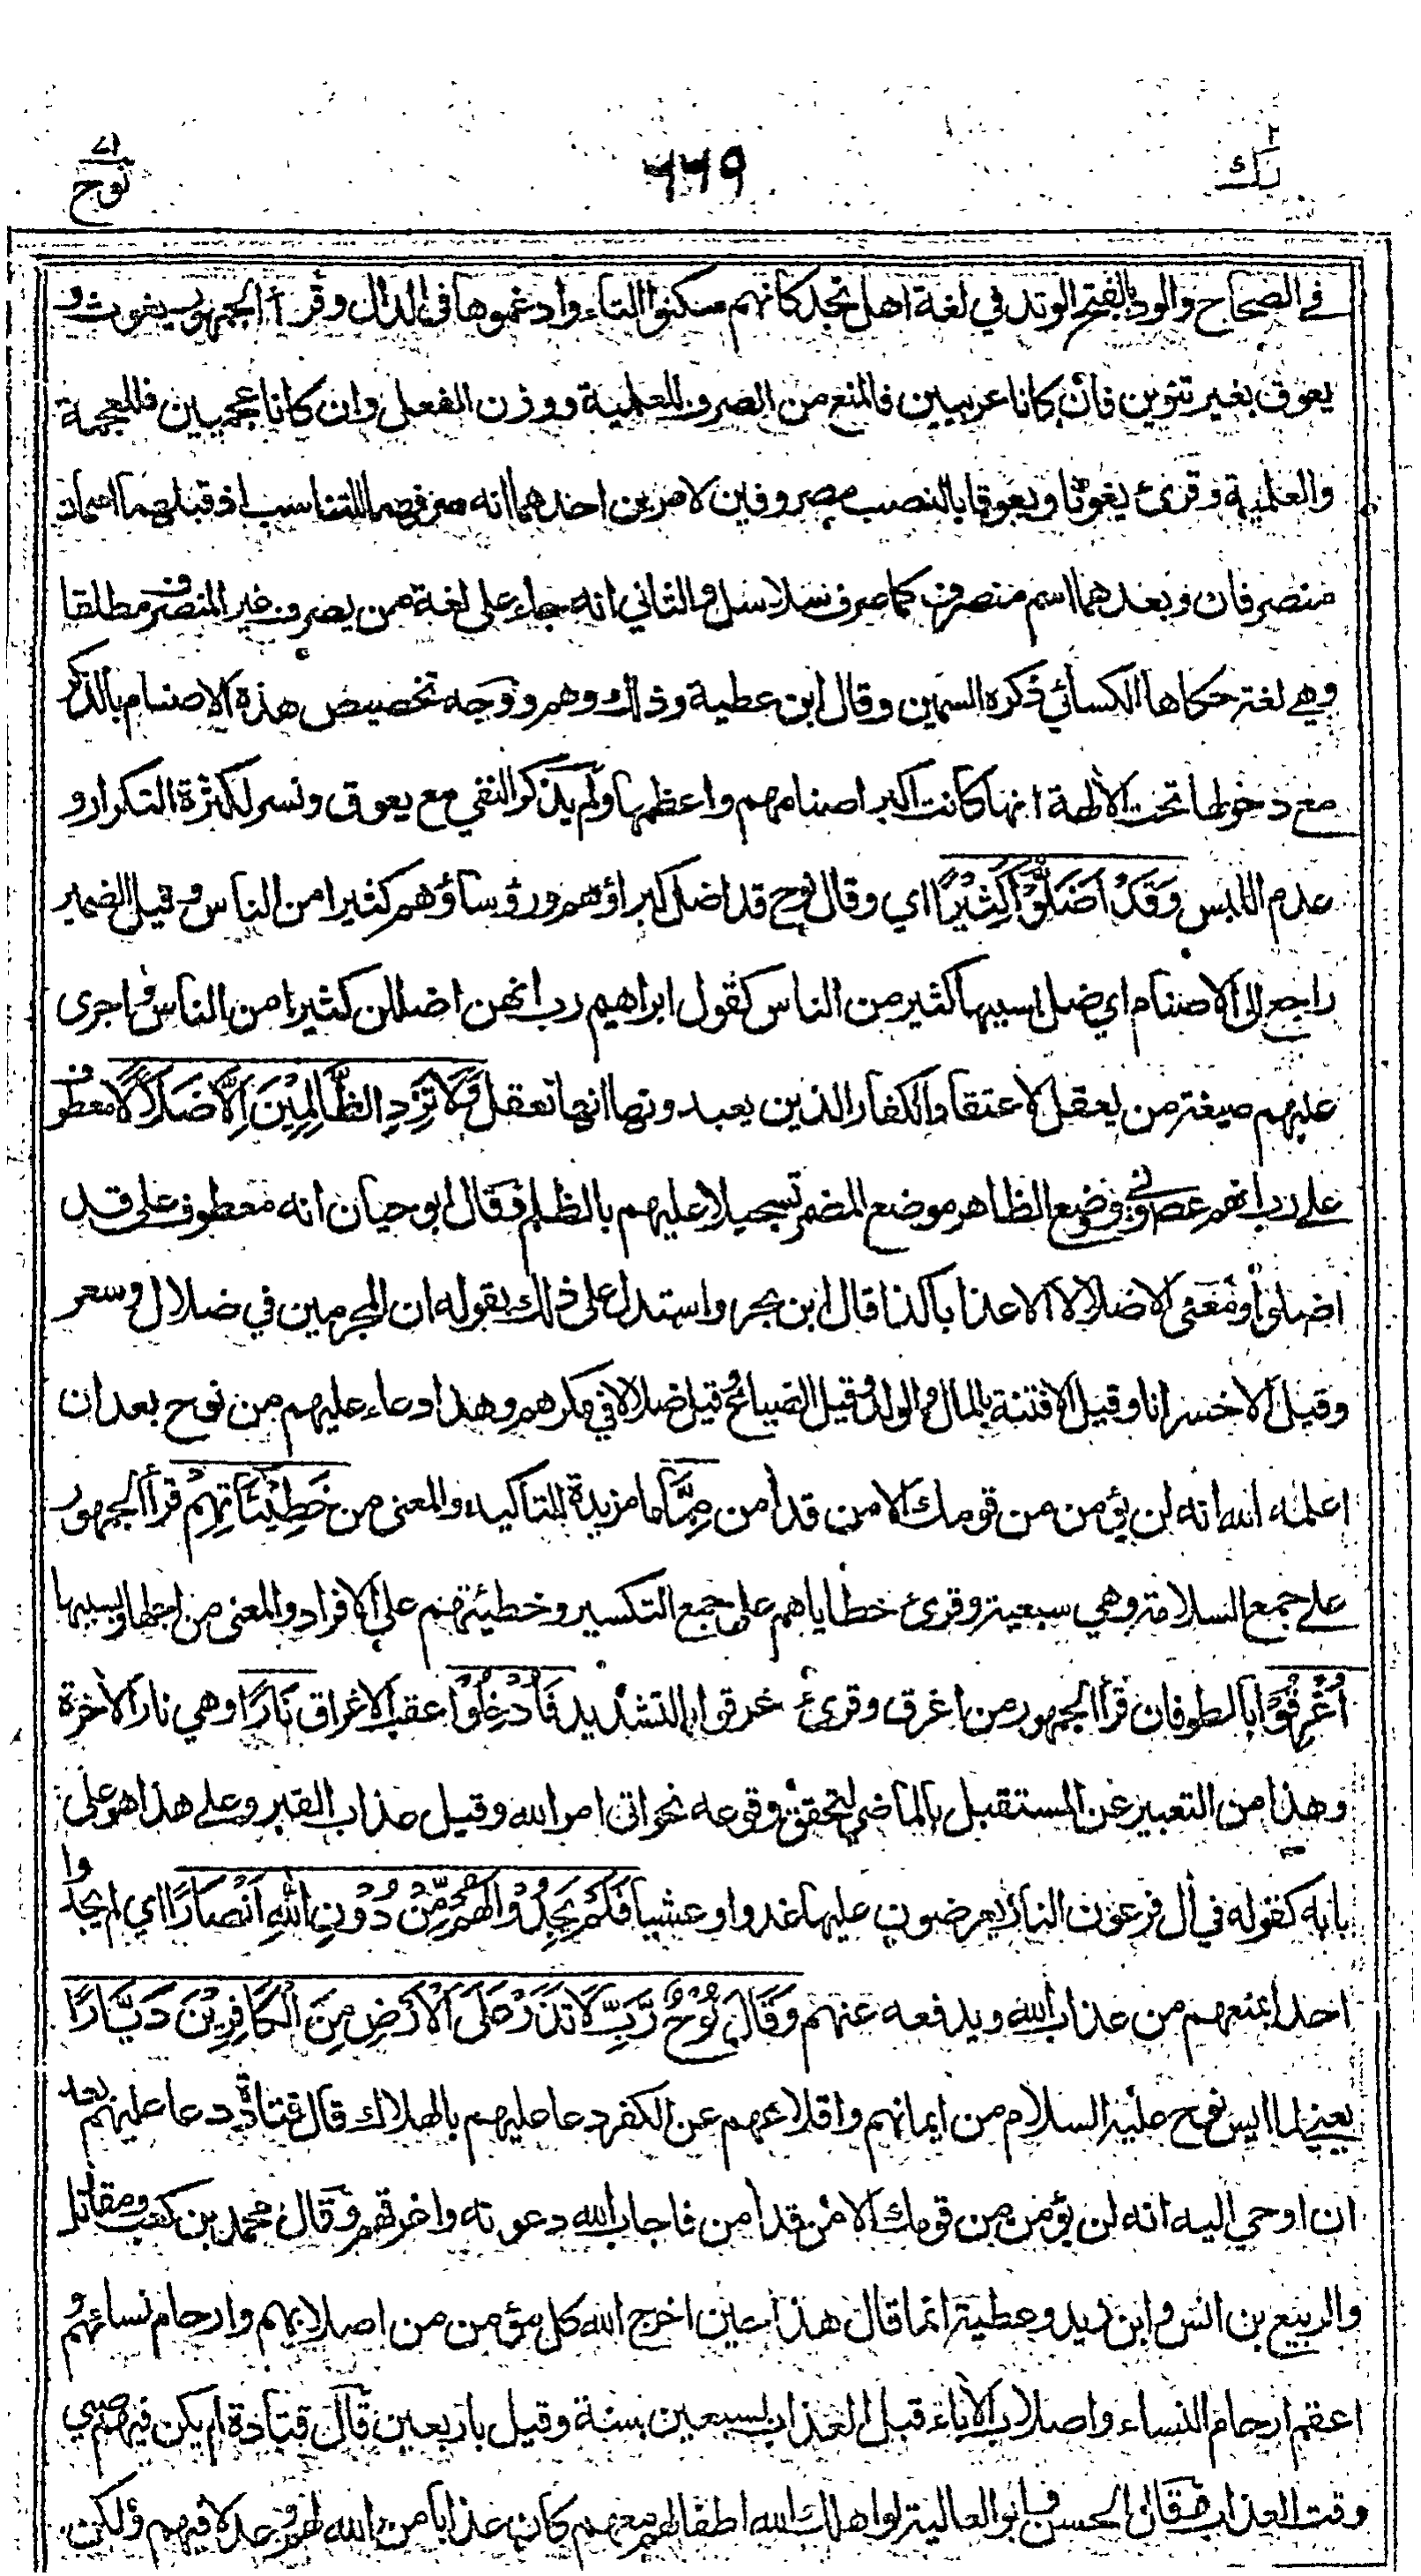 نوح ٧١
٦٦٩
في الصحاح والود بالفتح الوتد في لغة اهل نجد كانهم سكنوا التاء وادغموها في الدال وقرأ الجمهور يغوث و
يعوق بغير تنوين فان كانا عربيين فالمنع من الصرف للعلمية ووزن الفعل وان كانا عجميين فللعجمة
والعلمية وقرئ يغوثا ويعوقا بالنصب مصروفين لامرين احدهما انه صرفهما للتناسب اذ قبلهما اسمان
منصرفان وبعدهما اسم منصرف كما صرف سلاسل والثاني انه جاء على لغة من يصرف غير المنصرف مطلقا
وهي لغة حكاها الكسائي ذكره السمين وقال ابن عطية وذلك وهم ووجه تخصيص هذه الاصنام بالذكر
مع دخولها تحت الآلهة انها كانت اكبر اصنامهم واعظمها ولم يذكر النفي مع يعوق ونسر لكثرة التكرار و
عدم اللبس وَقَدْ اَضَلُّوْا كَثِيْرًا اي وقال نوح قد اضل كبراؤهم ورؤساؤهم كثيرا من الناس وقيل الضمير
راجع الى الاصنام اي ضل بسببها كثير من الناس كقول ابراهيم رب انهن اضللن كثيرا من الناس واجرى
عليهم صيغة من يعقل لاعتقاد الكفار الذين يعبدونها انها تعقل وَلَا تَزِدِ الظَّالِمِيْنَ اِلَّا ضَلَالًا معطوف
على رب انهم عصوني ووضع الظاهر موضع المضمر تسجيلا عليهم بالظلم وقال ابو حيان انه معطوف على قد
اضلوا ومعنى الا ضلالا الا عذابا كذا قال ابن بحر واستدل على ذلك بقوله ان المجرمين في ضلال وسعر
وقيل الا خسرانا وقيل الا فتنة بالمال والولد وقيل الضياع وقيل ضلالا في مكرهم وهذا دعاء عليهم من نوح بعد ان
اعلمه الله انه لن يؤمن من قومك الا من قد أمن مِمَّا ما مزيدة للتاكيد والمعنى من خَطِيْئَاتِهِمْ قرأ الجمهور
على جمع السلامة وهي سبعية وقرئ خطاياهم على جمع التكسير وخطيئتهم على الافراد والمعنى من اجلها وبسببها
اُغْرِقُوْا بالطوفان قرأ الجمهور من اغرق وقرئ غرقوا بالتشديد فَاُدْخِلُوْا عقب الاغراق نَارًا وهي نار الآخرة
وهذا من التعبير عن المستقبل بالماضي لتحقق وقوعه نحو اتى امر الله وقيل عذاب القبر وعلى هذا هو على
بابه كقوله في أل فرعون النار يعرضون عليها غدوا وعشيا فَلَمْ يَجِدُوْا لَهُمْ مِّنْ دُوْنِ اللهِ اَنْصَارًا اي لم يجدوا
احدا يمنعهم من عذاب الله ويدفعه عنهم وَقَالَ نُوْحٌ رَّبِّ لَا تَذَرْ عَلَى الْاَرْضِ مِنَ الْكَافِرِيْنَ دَيَّارًا
يعني لما ايس نوح عليه السلام من ايمانهم واقلاعهم عن الكفر دعا عليهم بالهلاك قال قتادة دعا عليهم بعد
ان اوحي اليه انه لن يؤمن من قومك الا من قد أمن فاجاب الله دعوته واغرقهم وقال محمد بن كعب ومقاتل
والربيع بن انس وابن زيد وعطية انما قال هذا حين اخرج الله كل مؤمن من اصلابهم وارحام نسائهم و
اعقم ارحام النساء واصلاب الآباء قبل العذاب بسبعين سنة وقيل باربعين قال قتادة لم يكن فيهم صبي
وقت العذاب وقال الحسن وابو العالية لو اهلك الله اطفالهم معهم كان عذابا من الله لهم وعدلا فيهم ولكن